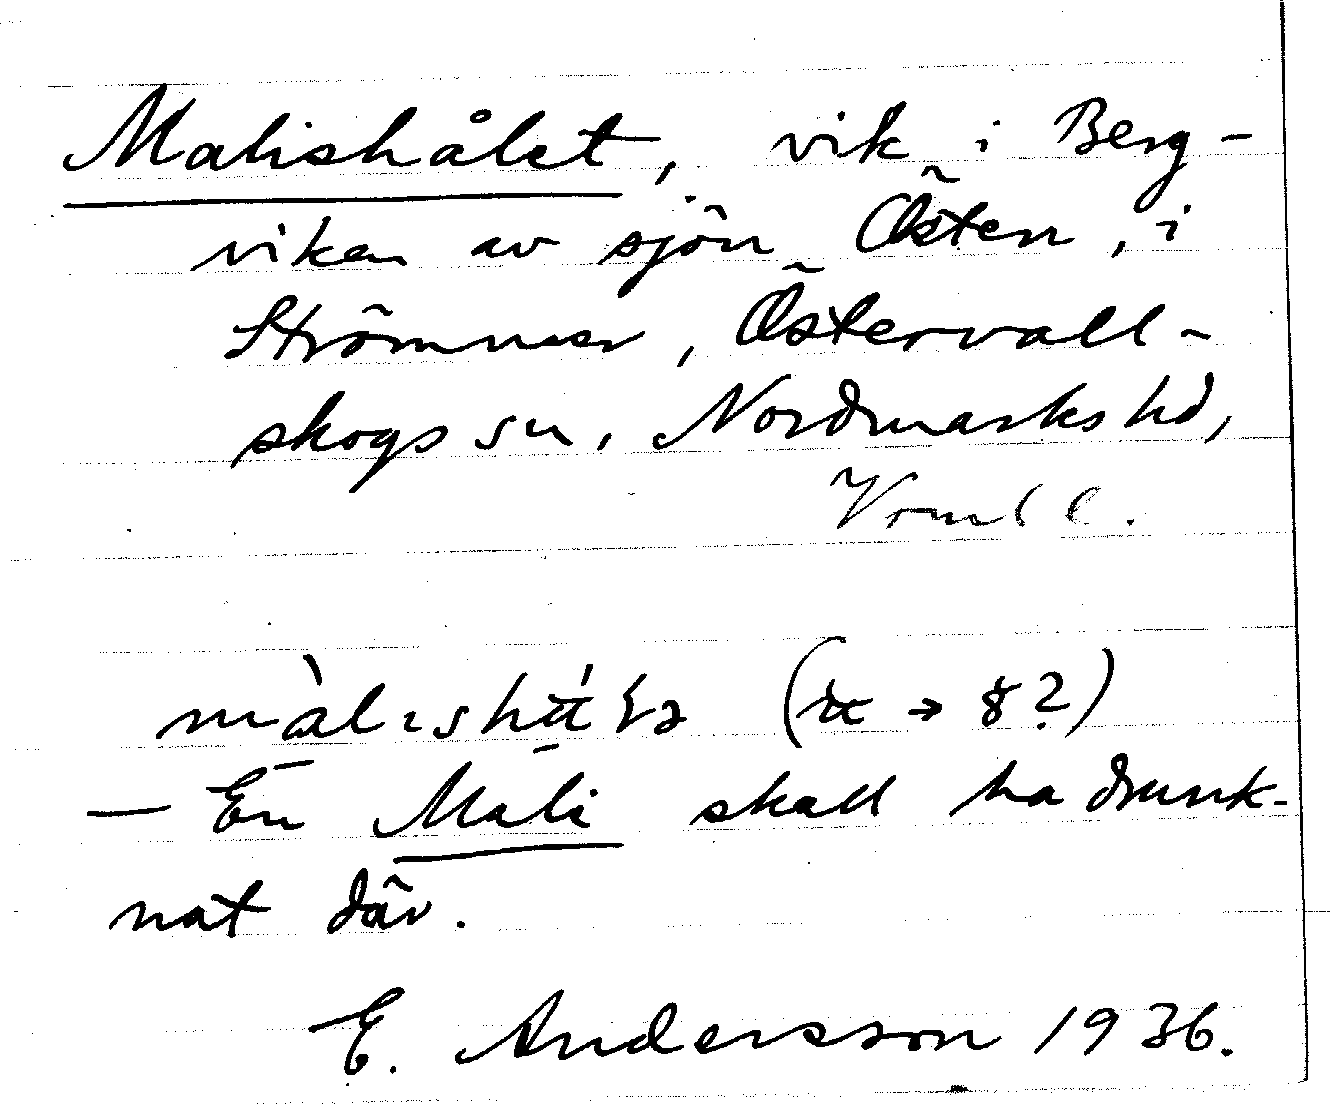 Malishålet, vik i Berg-
viken av sjön Östen, i
Strömmer, Östervall-
skogs sn, Nordmarks hd,
Vrml l.
(→ 8?)
— En Mali skall ha drunk-
nat där.
E. Andersson 1936.